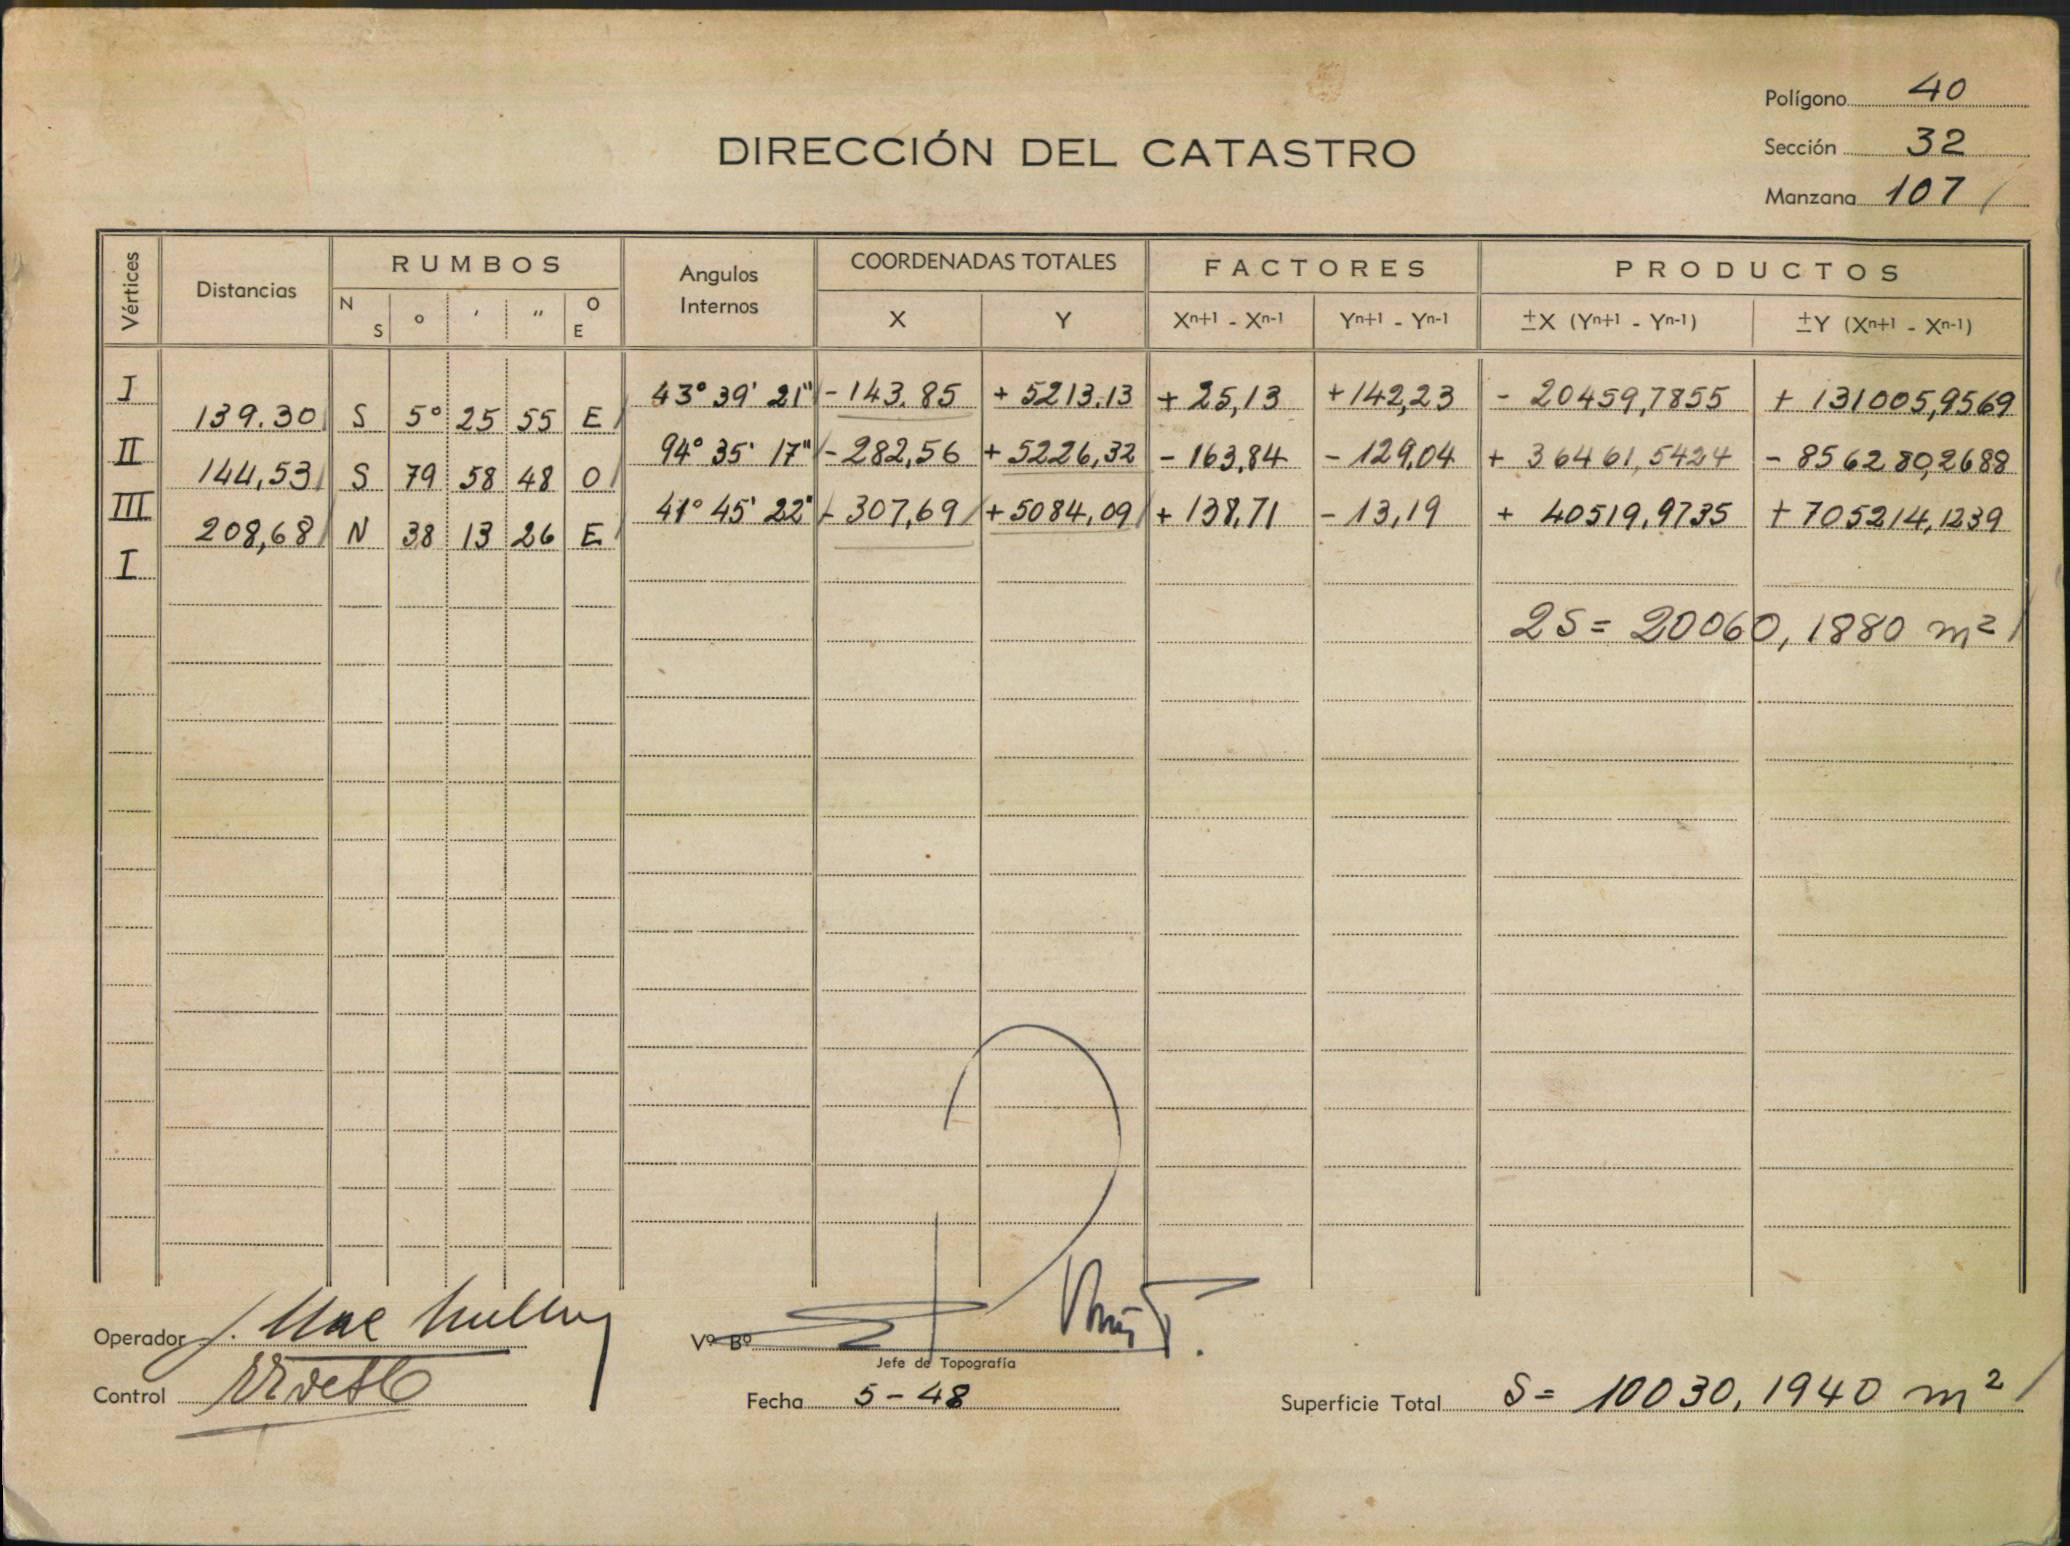 Polígono 40
DIRECCIÓN DEL CATASTRO
Sección 32
Manzana 107 /
Vértices Distancias RUMBOS Angulos Internos COORDENADAS TOTALES FACTORES PRODUCTOS
N S ° ' " O E X Y Xⁿ⁺¹ - Xⁿ⁻¹ Yⁿ⁺¹ - Yⁿ⁻¹ ±X (Yⁿ⁺¹ - Yⁿ⁻¹) ±Y (Xⁿ⁺¹ - Xⁿ⁻¹)
I 43° 39' 21" - 143.85 + 5213.13 + 25,13 +142,23 - 20459,7855 + 131005,9569
139.30 S 5° 25 55 E
II 94° 35' 17" - 282,56 + 5226,32 - 163,84 - 129,04 + 36461,5424 - 856280,2688
144,53 S 79 58 48 O
III 41° 45' 22" - 307,69 + 5084,09 + 138,71 - 13,19 + 40519,9735 + 705214,1239
208,68 N 38 13 26 E
I
2S = 20060,1880 m² /
Operador J. Mac
Vº Bº
Jefe de Topografía
Control
Fecha 5-48
Superficie Total S = 10030,1940 m² /